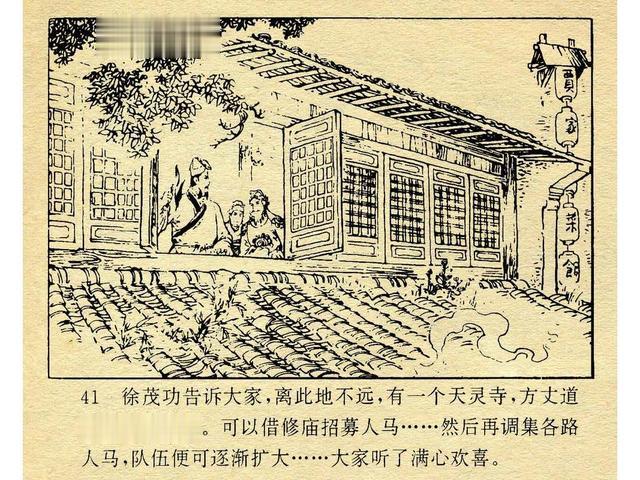 賈
家
菜
館
41 徐茂功告诉大家，离此地不远，有一个天灵寺，方丈道
。可以借修庙招募人马……然后再调集各路
人马，队伍便可逐渐扩大……大家听了满心欢喜。